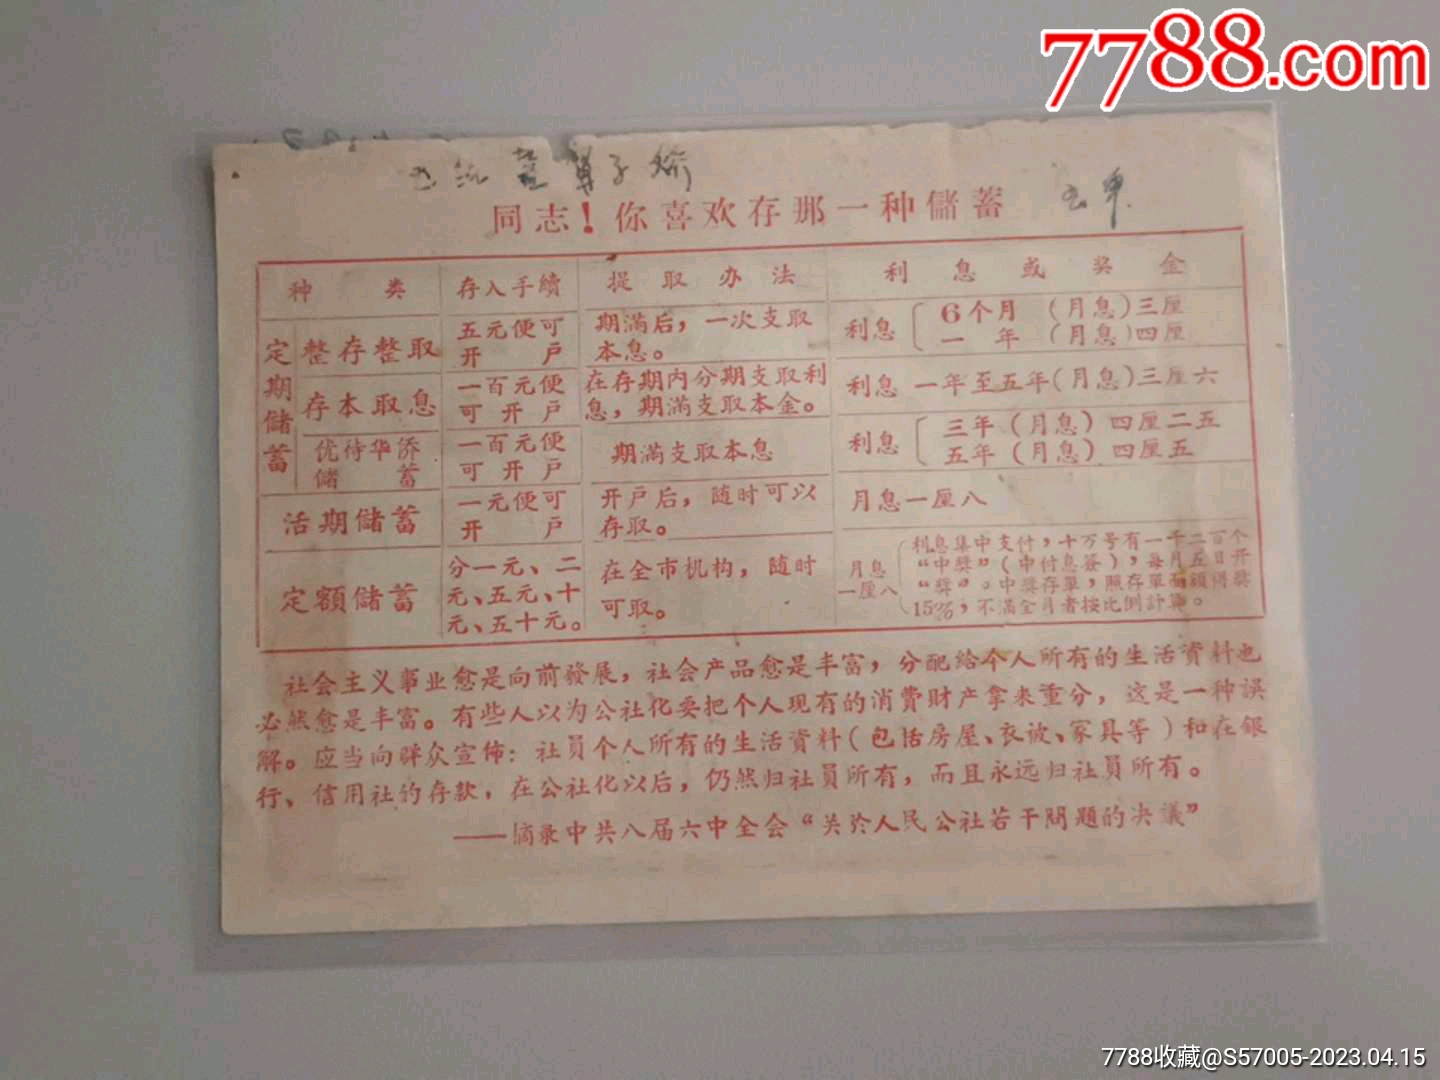 7788.com
同志！你喜欢存那一种儲蓄
种类 存入手續 提取办法 利息或奖金
定期儲蓄
整存整取 五元便可开户 期滿后，一次支取本息。 利息 6个月（月息）三厘 一年（月息）四厘
存本取息 一百元便可开户 在存期内分期支取利息，期滿支取本金。 利息 一年至五年（月息）三厘六
优待华侨儲蓄 一百元便可开户 期滿支取本息 利息 三年（月息）四厘二五 五年（月息）四厘五
活期儲蓄 一元便可开户 开户后，随时可以存取。 月息一厘八
定額儲蓄 分一元、二元、五元、十元、五十元。 在全市机构，随时可取。 月息一厘八 利息集中支付，十万号有一千二百个“中獎”（中付息簽），每月五日开“獎”。中獎存單，照存單面額得獎15%，不滿全月者按比例計算。
社会主义事业愈是向前發展，社会产品愈是丰富，分配給个人所有的生活資料也
必然愈是丰富。有些人以为公社化要把个人现有的消費財产拿来重分，这是一种誤
解。应当向群众宣佈：社員个人所有的生活資料（包括房屋、衣被、家具等）和在銀
行、信用社的存款，在公社化以后，仍然归社員所有，而且永远归社員所有。
——摘录中共八届六中全会“关於人民公社若干問題的决議”
7788收藏@S57005-2023.04.15